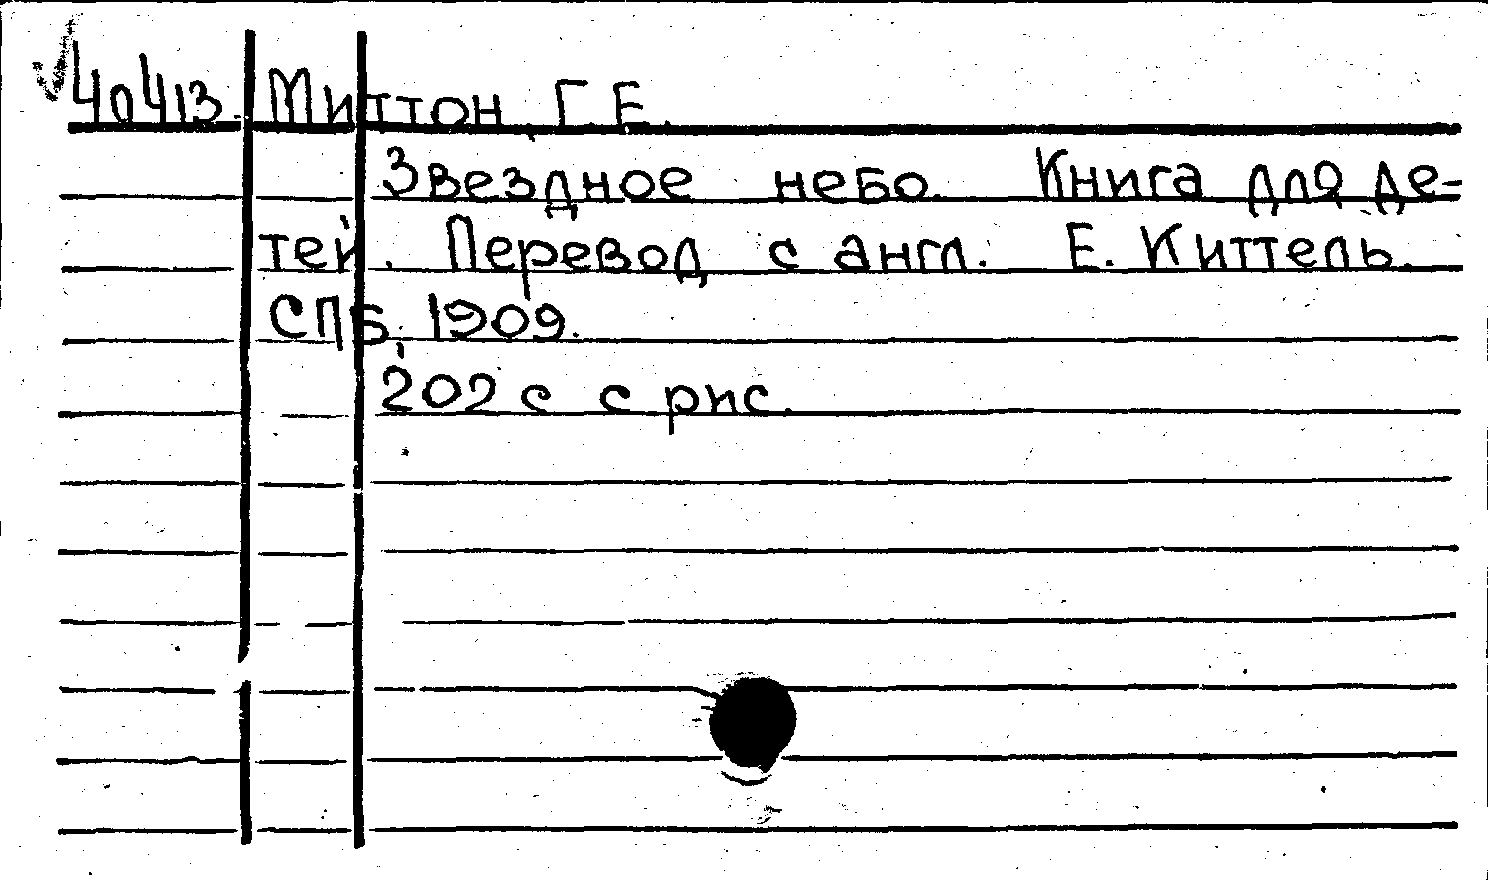 40413. Миттон, Г. Е.
Звездное небо. Книга для де-
тей. Перевод с англ. Е. Киттель.
СПБ, 1909.
202 с с рис.